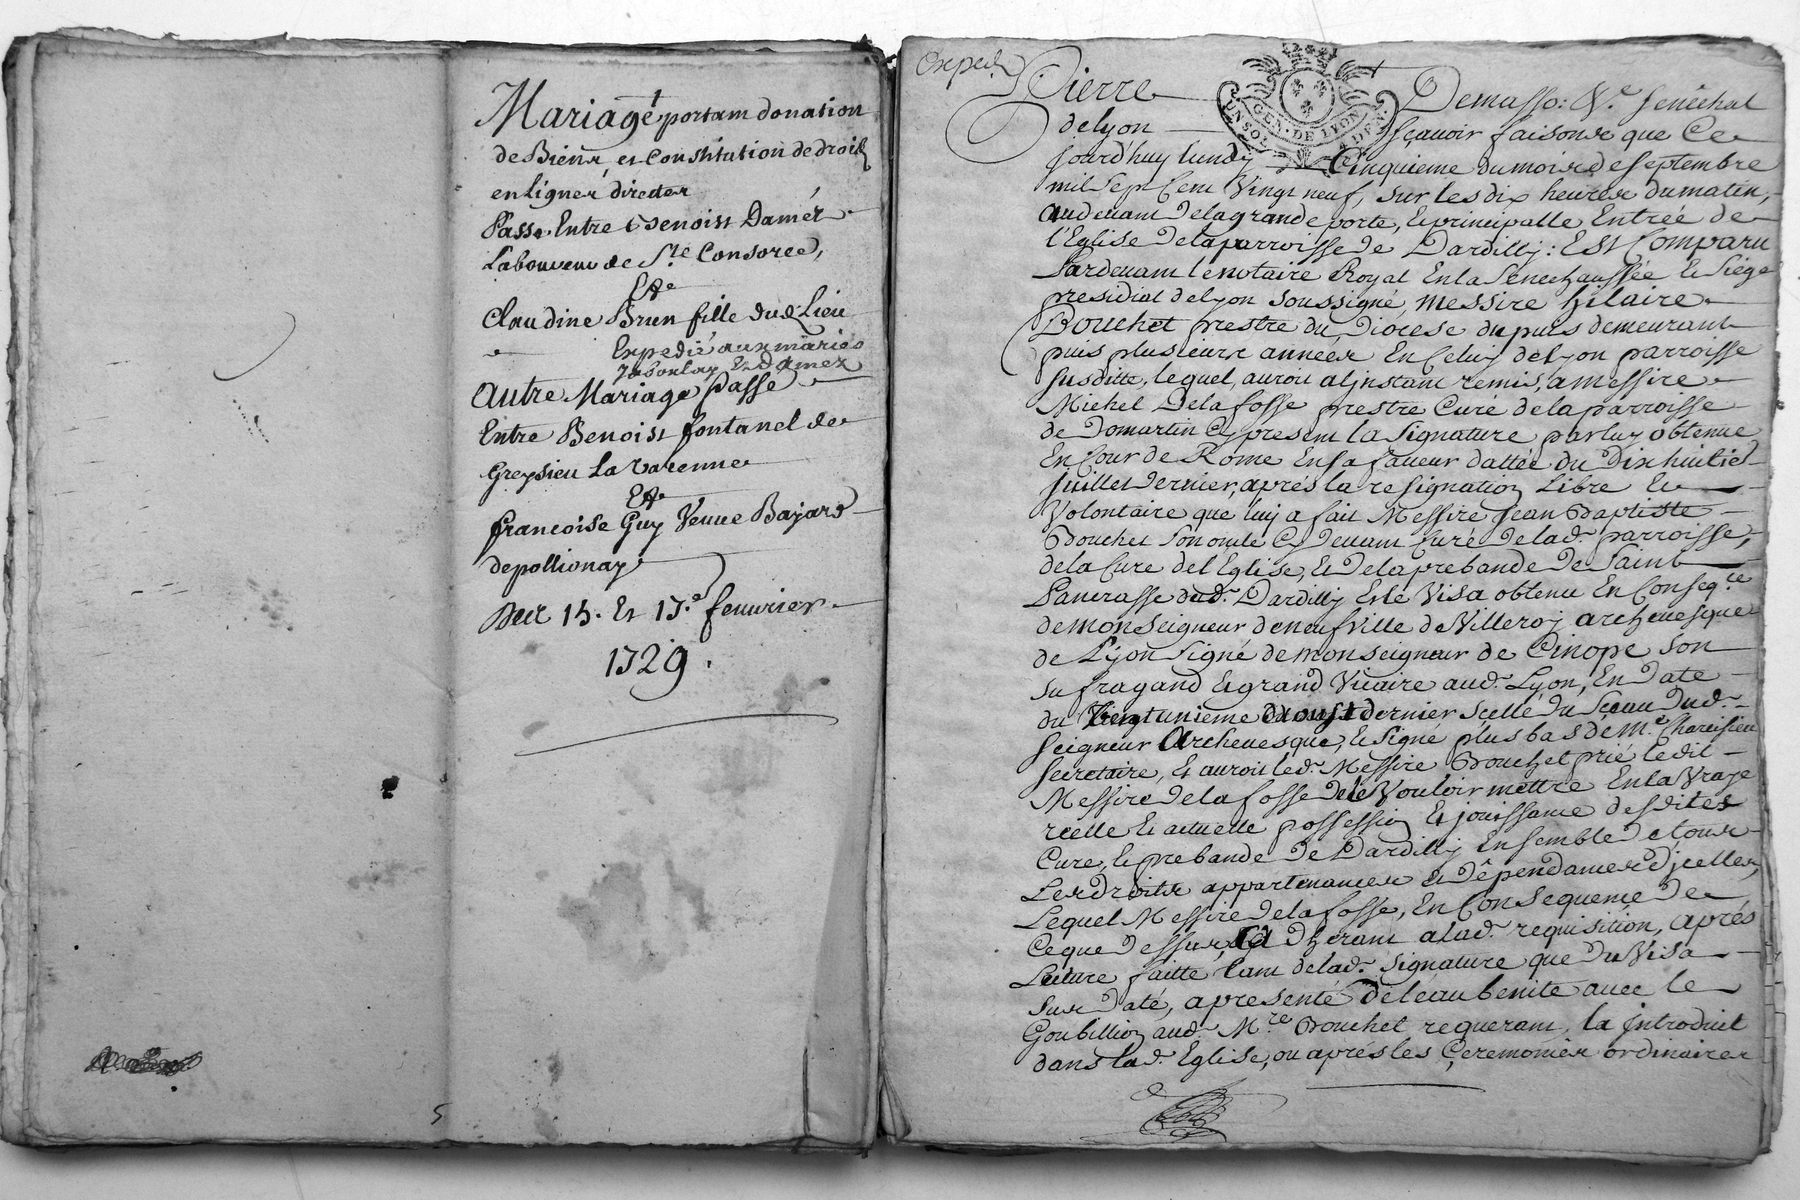 Mariage portant donation
de Biens et Constitution de droits
en Lignes directes
Passé Entre Benoist Damés
Laboureur de Ste Consorce,
Et
Claudine Brun fille dud. Lieu
Expedié aux mariés
Et Damez
Autre Mariage passé
Entre Benoist fontanel de
Greysieu La varenne
Et
francoise Guy Veuue Bajard
de pollionay
Des 15. Et 17.e feuurier
1729.
5
Exped.
Pierre Demasso: V.e Senéchal
de Lyon sçauoir faisons que Ce
Jourd'huy lundy Cinquieme du mois de septembre
mil sept Cent Vingt neuf, sur les dix heures du matin,
audeuant de la grande porte, & principalle Entrée de
l'Eglise de la parroisse de Dardilly: Est Comparu
Pardeuant le notaire Royal En la Senechaussée & Siége
presidial de Lyon soussigné, messire hilaire
Bouchet prestre du Diocese du puis demeurant
puis plusieurs années En Celuy de Lyon parroisse
susditte, lequel, auroit a linstant remis, a messire
Michel Delafosse prestre Curé de la parroisse
de Domartin Cy present la signature par luy obtenue
En Cour de Rome En sa faueur dattée du Dixhuitie
Juillet Dernier, aprés la resignation Libre &
Volontaire que luy a fait Messire Jean Baptiste
Bouchet son oncle Cy Deuant Curé de lad. parroisse,
de la Cure de l'Eglise, & de la prebande De Saint
Pancrasse dud. Dardilly & le Visa obtenu En Conseq.ce
de monseigneur de neufville de Villeroy archeuesque
de Lyon signé de monseigneur de Cinope son
sufragand & grand Vicaire aud. Lyon, En date
du Vingtunieme daoust dernier scellé du sceau dud.
seigneur Archeuesque, & signé plus bas de M.e
secretaire, Et auroit led. Messire Bouchet prié ledit
Messire Delafosse de le Vouloir mettre En la Vraye
réelle & actuelle possession & jouissance desdites
Cure, & prebande de Dardilly Ensemble de tous
Les droits appartenances & dépendances d'jcelles,
Lequel Messire Delafosse, En Consequence de
Ce que dessus, adherant a lad. requisition, aprés
Lecture faitte tant de lad. signature que du Visa
sus daté, a presenté de l'eau benite auec le
Goubillion aud. M.re Bouchet requerant, la Jntroduit
dans lad. Eglise, ou aprés les Ceremonies ordinaires